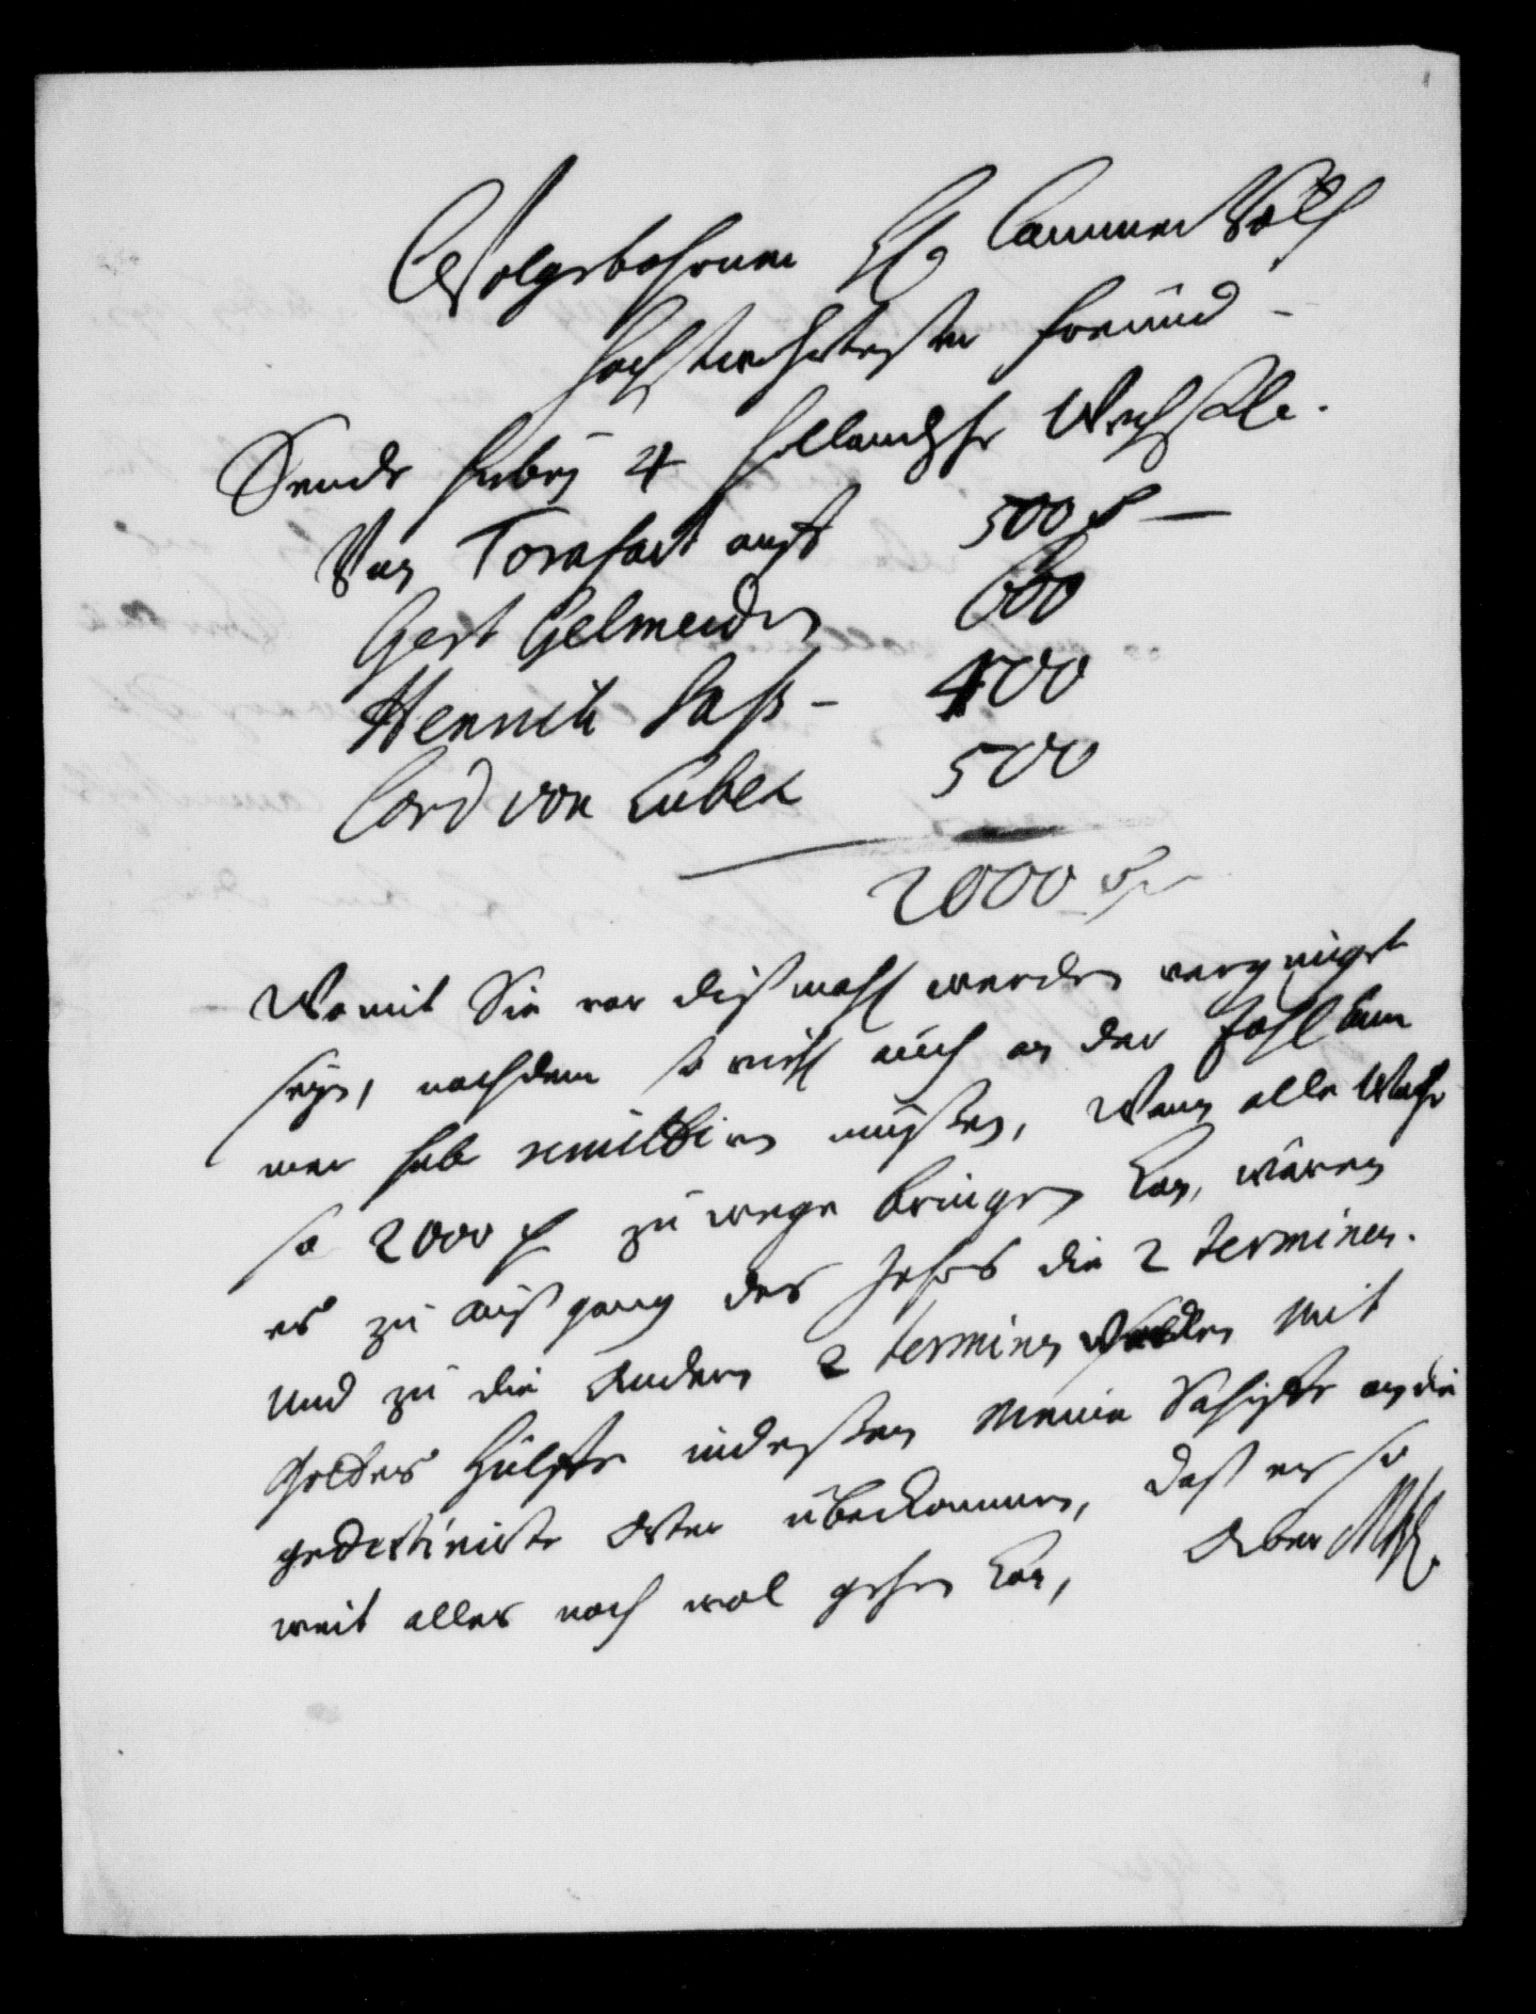 Wolgebohrner H. Cammer Rath
hochstwehrtester Freünd -
Sende hirbey 4 hollandsche Wechselle.
Von Tornhart auff 500
Gert Gelmeiden 600
Henrich Saß - 400
Cord von Lubek 500
2000
Womit Sie vor dißmahl werden vergnügt
seyn, nachdem so viehl auch an der Zahl Cam
mer hab remittiren müßen, Wenn alle Woche
so 2000 zu wege bringen kan, wären
es zu außgang des Jahrs die 2 terminen.
Und zu die Andern 2 terminen werden mit
Gottes Hülffe indeßen meine Schiffe an die
gedestinirte Örter überkommen, daß es so
weit alles noch wol gehen kan, Aber